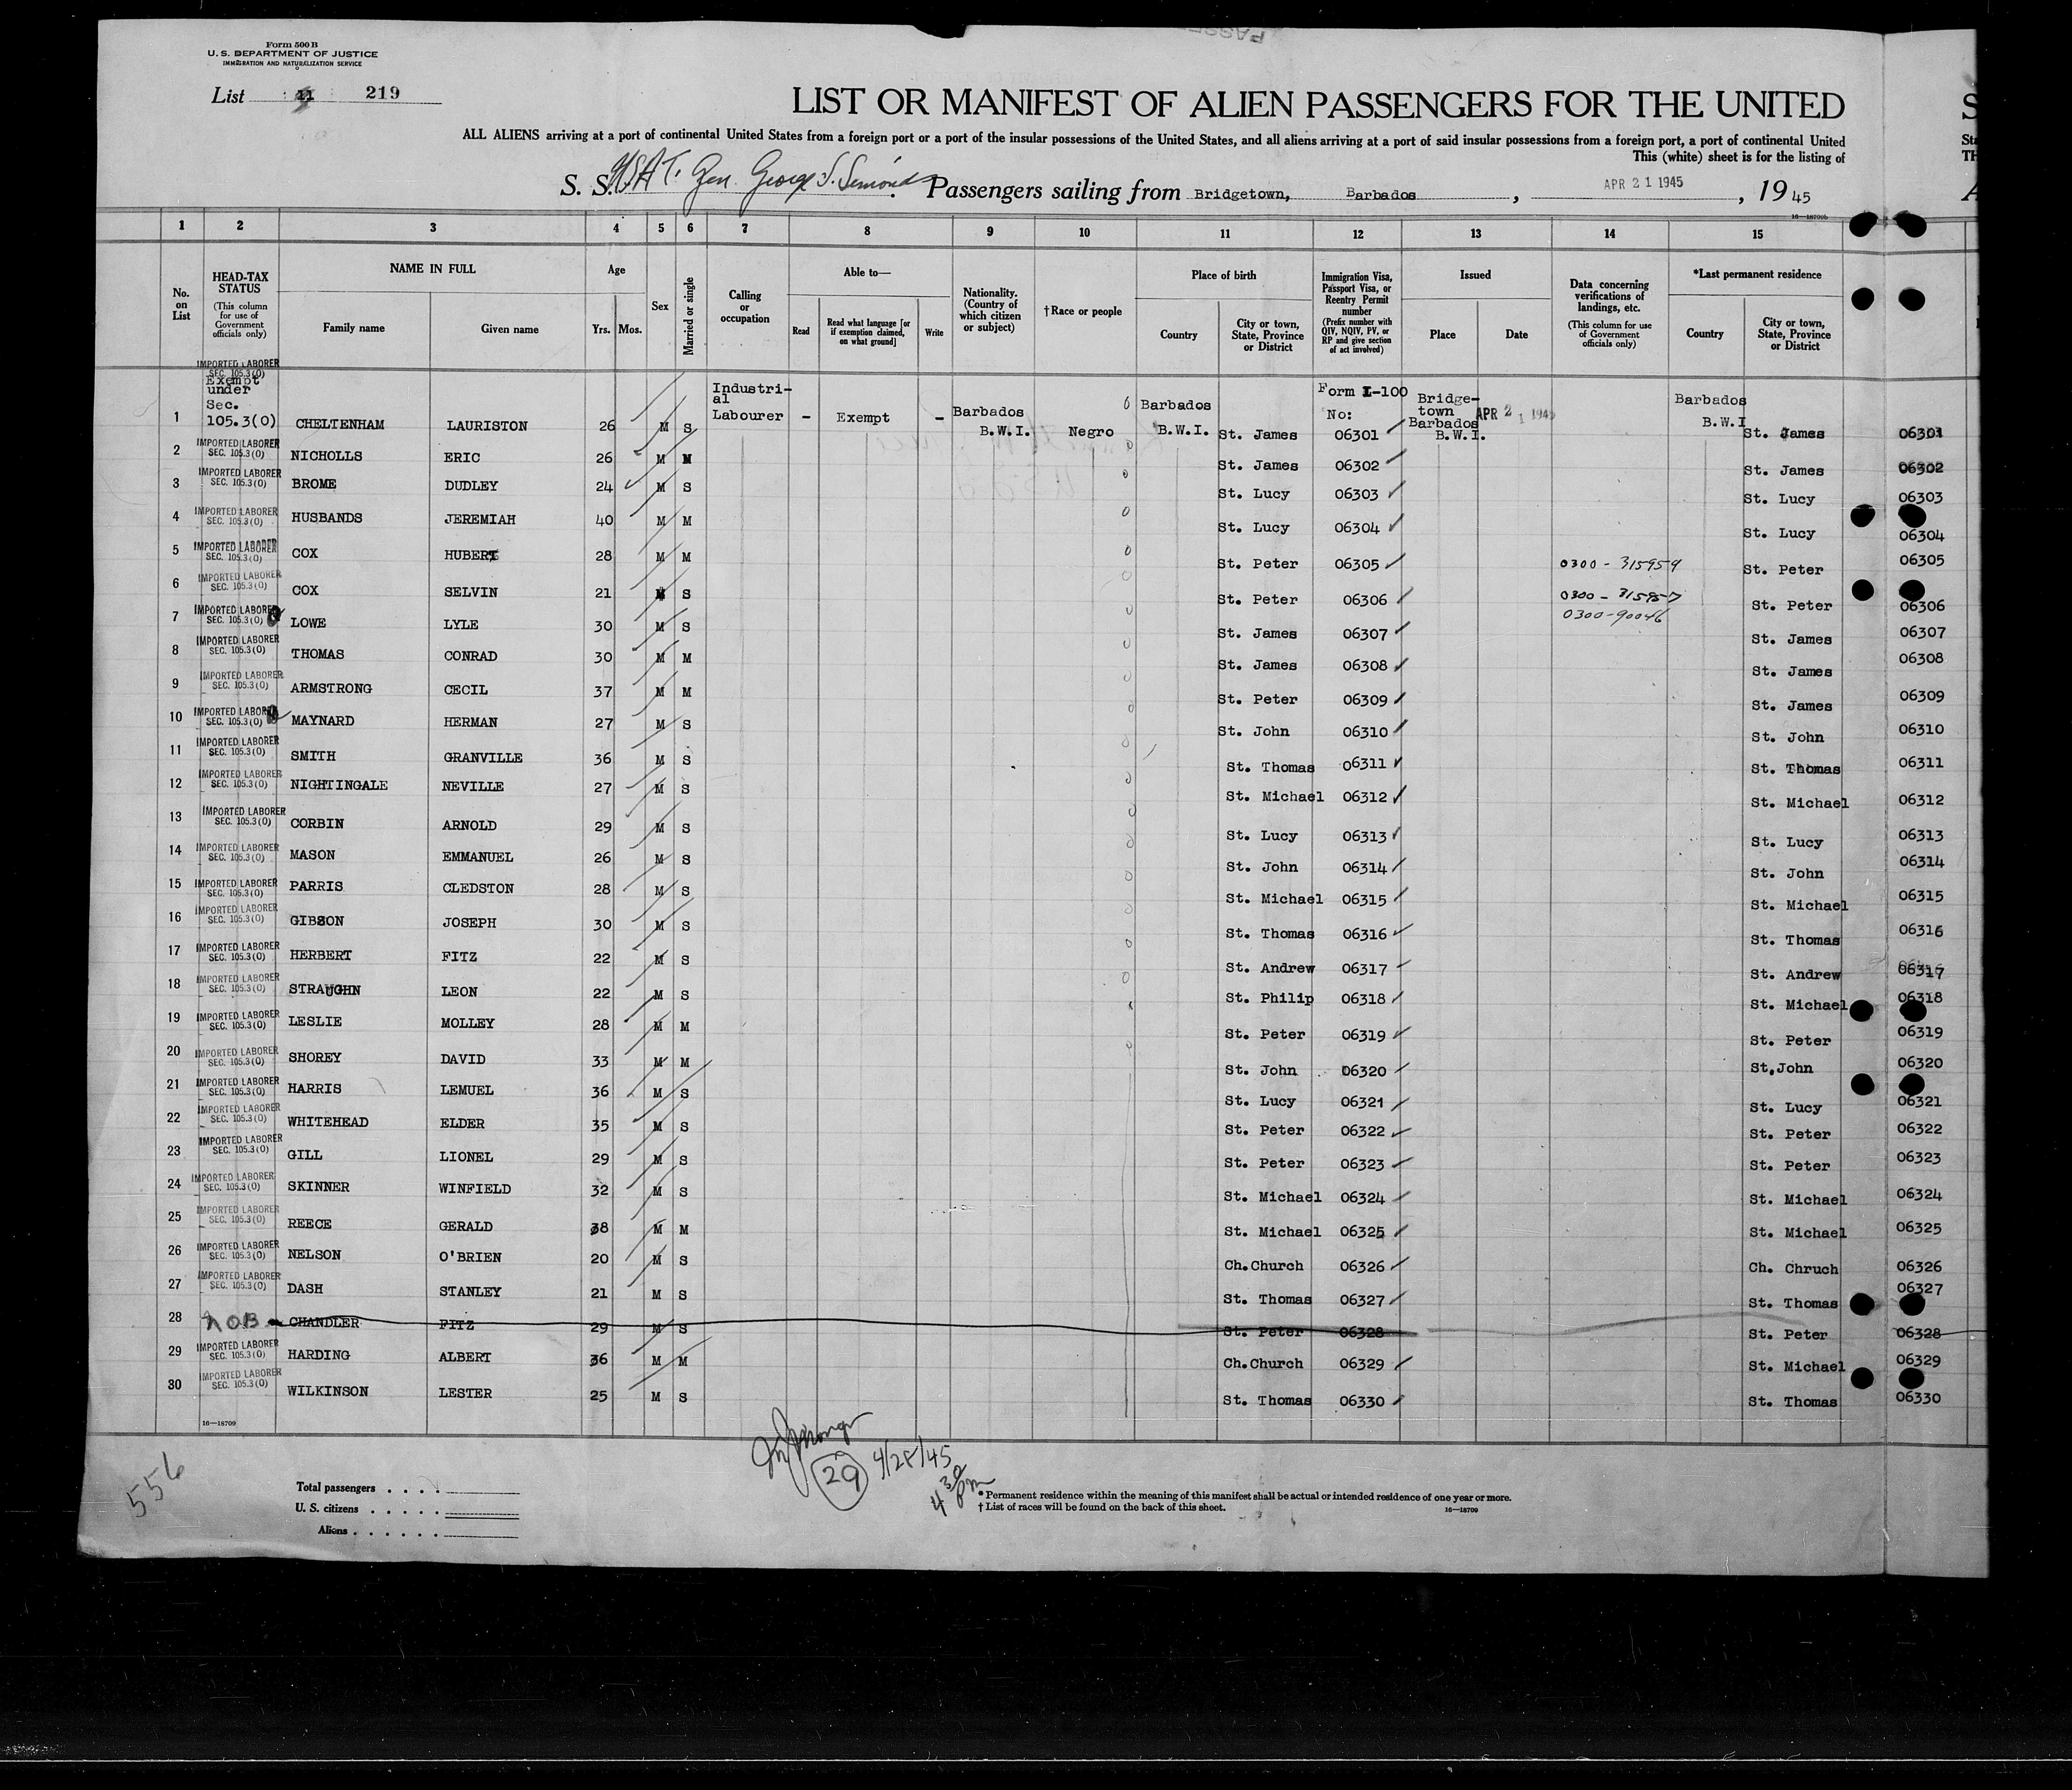 Form 500 B
U. S. DEPARTMENT OF JUSTICE
IMMIGRATION AND NATURALIZATION SERVICE
List 219
LIST OR MANIFEST OF ALIEN PASSENGERS FOR THE UNITED
ALL ALIENS arriving at a port of continental United States from a foreign port or a port of the insular possessions of the United States, and all aliens arriving at a port of said insular possessions from a foreign port, a port of continental United
This (white) sheet is for the listing of
S. S. USAT. Gen. George S. Simonds Passengers sailing from Bridgetown, Barbados, APR 21 1945, 19 45
16—18709b
1 2 3 4 5 6 7 8 9 10 11 12 13 14 15
No. on List
HEAD-TAX STATUS (This column for use of Government officials only)
NAME IN FULL Family name Given name
Age Yrs. Mos.
Sex
Married or single
Calling or occupation
Able to— Read Read what language [or if exemption claimed, on what ground] Write
Nationality. (Country of which citizen or subject)
†Race or people
Place of birth Country City or town, State, Province or District
Immigration Visa, Passport Visa, or Reentry Permit number (Prefix number with QIV, NQIV, PV, or RP and give section of act involved)
Issued Place Date
Data concerning verifications of landings, etc. (This column for use of Government officials only)
*Last permanent residence Country City or town, State, Province or District
IMPORTED LABORER SEC. 105.3(0)
Exempt under Sec. 105.3(0)
Industrial Labourer - Exempt - Barbados B.W.I. Negro Barbados B.W.I. Form I-100 No: Bridgetown Barbados B.W.I. APR 21 1945 Barbados B.W.I
1 CHELTENHAM LAURISTON 26 M S St. James 06301 St. James 06301
2 IMPORTED LABORER SEC. 105.3(0) NICHOLLS ERIC 26 M M St. James 06302 St. James 06302
3 IMPORTED LABORER SEC. 105.3(0) BROME DUDLEY 24 M S St. Lucy 06303 St. Lucy 06303
4 IMPORTED LABORER SEC. 105.3(0) HUSBANDS JEREMIAH 40 M M St. Lucy 06304 St. Lucy 06304
5 IMPORTED LABORER SEC. 105.3(0) COX HUBERT 28 M M St. Peter 06305 0300 - 315959 St. Peter 06305
6 IMPORTED LABORER SEC. 105.3(0) COX SELVIN 21 M S St. Peter 06306 0300 - 315957 St. Peter 06306
7 IMPORTED LABORER SEC. 105.3(0) LOWE LYLE 30 M S St. James 06307 0300-90046 St. James 06307
8 IMPORTED LABORER SEC. 105.3(0) THOMAS CONRAD 30 M M St. James 06308 St. James 06308
9 IMPORTED LABORER SEC. 105.3(0) ARMSTRONG CECIL 37 M M St. Peter 06309 St. James 06309
10 IMPORTED LABORER SEC. 105.3(0) MAYNARD HERMAN 27 M S St. John 06310 St. John 06310
11 IMPORTED LABORER SEC. 105.3(0) SMITH GRANVILLE 36 M S St. Thomas 06311 St. Thomas 06311
12 IMPORTED LABORER SEC. 105.3(0) NIGHTINGALE NEVILLE 27 M S St. Michael 06312 St. Michael 06312
13 IMPORTED LABORER SEC. 105.3(0) CORBIN ARNOLD 29 M S St. Lucy 06313 St. Lucy 06313
14 IMPORTED LABORER SEC. 105.3(0) MASON EMMANUEL 26 M S St. John 06314 St. John 06314
15 IMPORTED LABORER SEC. 105.3(0) PARRIS CLEDSTON 28 M S St. Michael 06315 St. Michael 06315
16 IMPORTED LABORER SEC. 105.3(0) GIBSON JOSEPH 30 M S St. Thomas 06316 St. Thomas 06316
17 IMPORTED LABORER SEC. 105.3(0) HERBERT FITZ 22 M S St. Andrew 06317 St. Andrew 06317
18 IMPORTED LABORER SEC. 105.3(0) STRAUGHN LEON 22 M S St. Philip 06318 St. Michael 06318
19 IMPORTED LABORER SEC. 105.3(0) LESLIE MOLLEY 28 M M St. Peter 06319 St. Peter 06319
20 IMPORTED LABORER SEC. 105.3(0) SHOREY DAVID 33 M M St. John 06320 St.John 06320
21 IMPORTED LABORER SEC. 105.3(0) HARRIS LEMUEL 36 M S St. Lucy 06321 St. Lucy 06321
22 IMPORTED LABORER SEC. 105.3(0) WHITEHEAD ELDER 35 M S St. Peter 06322 St. Peter 06322
23 IMPORTED LABORER SEC. 105.3(0) GILL LIONEL 29 M S St. Peter 06323 St. Peter 06323
24 IMPORTED LABORER SEC. 105.3(0) SKINNER WINFIELD 32 M S St. Michael 06324 St. Michael 06324
25 IMPORTED LABORER SEC. 105.3(0) REECE GERALD 38 M M St. Michael 06325 St. Michael 06325
26 IMPORTED LABORER SEC. 105.3(0) NELSON O'BRIEN 20 M S Ch.Church 06326 Ch. Chruch 06326
27 IMPORTED LABORER SEC. 105.3(0) DASH STANLEY 21 M S St. Thomas 06327 St. Thomas 06327
28 NOB CHANDLER FITZ 29 M S St. Peter 06328 St. Peter 06328
29 IMPORTED LABORER SEC. 105.3(0) HARDING ALBERT 36 M M Ch.Church 06329 St. Michael 06329
30 IMPORTED LABORER SEC. 105.3(0) WILKINSON LESTER 25 M S St. Thomas 06330 St. Thomas 06330
16—18709
29 4/28/45
4 30 PM
556
Total passengers
U. S. citizens
Aliens
* Permanent residence within the meaning of this manifest shall be actual or intended residence of one year or more.
† List of races will be found on the back of this sheet.
16—18709